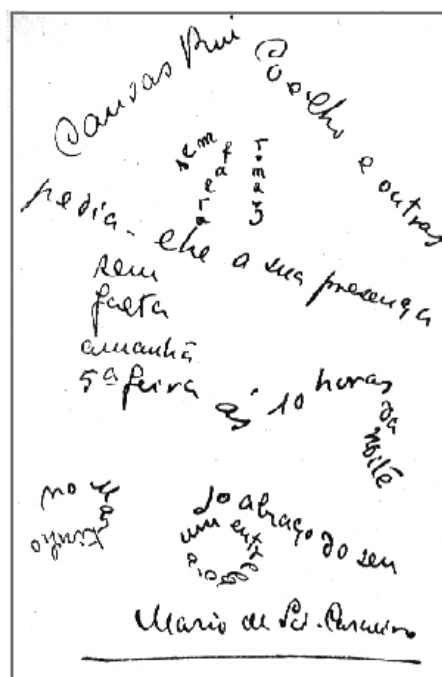 Causas Rui Coelho e outras
sem
pedia-lhe a sua presença
sem
falta
amanhã
5ª feira às 10 horas da noite
no Martinho
do abraço do seu
um
Mario de Sá-Carneiro